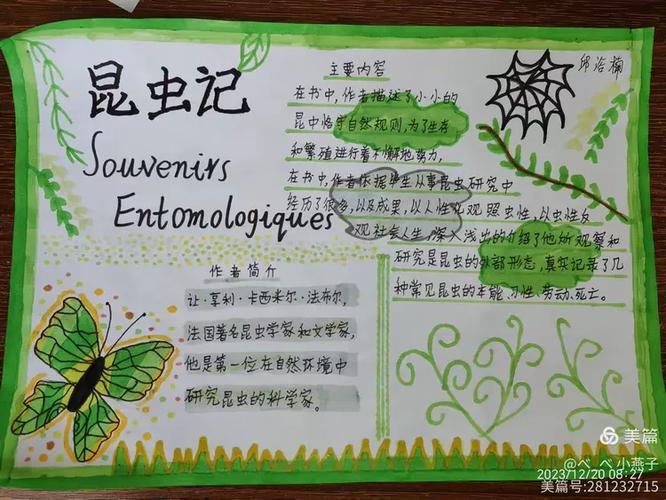 昆虫记
Souvenirs
Entomologiques
主要内容
在书中,作者描述了小小的
昆虫恪守自然规则,为了生存
和繁殖进行着不懈地努力,
在书中,作者依据毕生从事昆虫研究中
经历了很多,以及成果,以人性化观照虫性,以虫性反
观社会人生,深入浅出的介绍了他所观察和
研究是昆虫的外部形态,真实记录了几
种常见昆虫的本能、习性、劳动、死亡。
作者简介
让·亨利·卡西米尔·法布尔,
法国著名昆虫学家和文学家,
他是第一位在自然环境中
研究昆虫的科学家。
美篇
@ペ.ペ小燕子
2023/12/20 08:27
美篇号:281232715